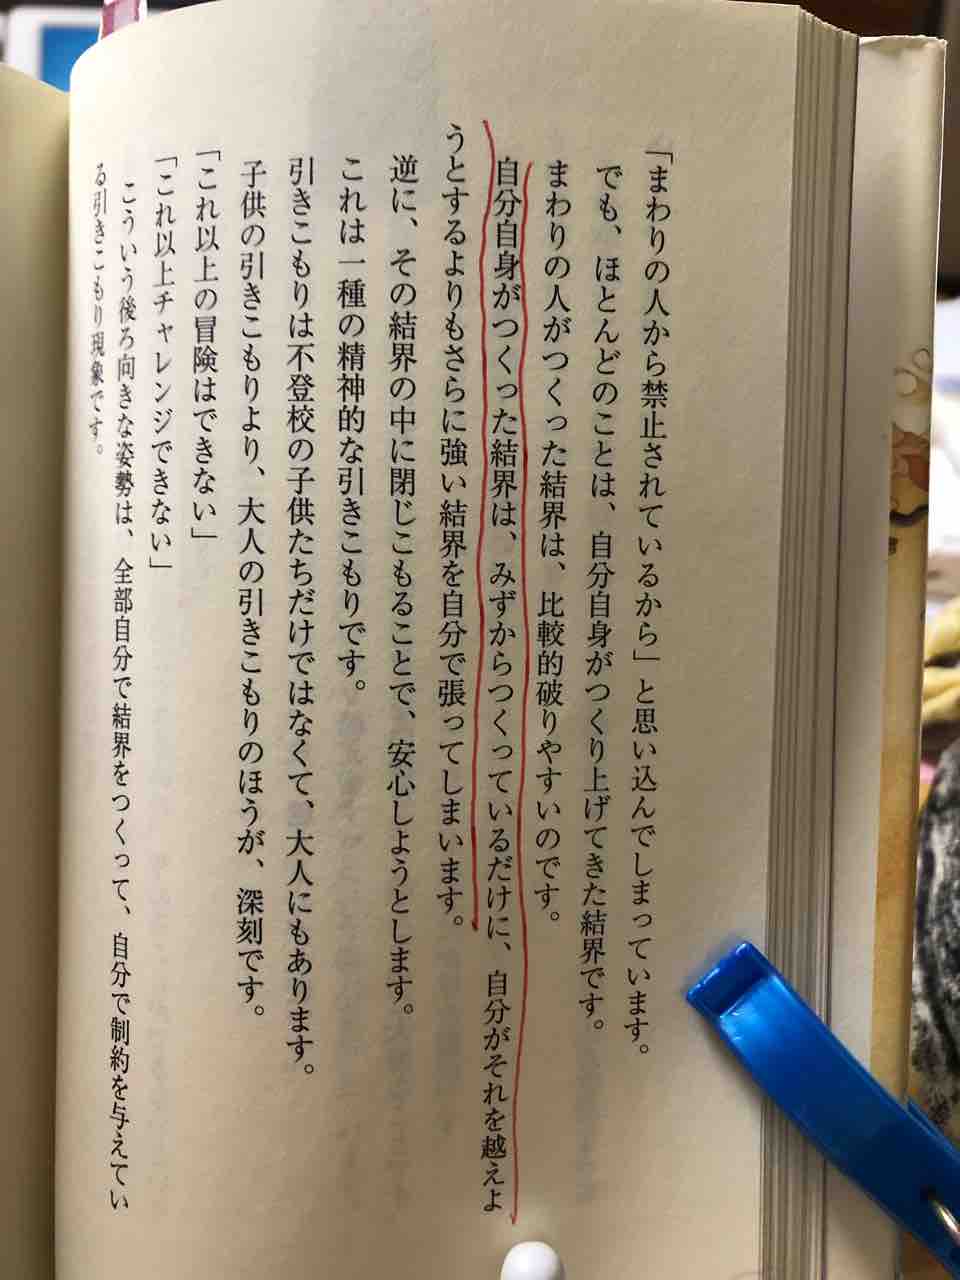 「まわりの人から禁止されているから」と思い込んでしまっています。
でも、ほとんどのことは、自分自身がつくり上げてきた結界です。
まわりの人がつくった結界は、比較的破りやすいのです。
自分自身がつくった結界は、みずからつくっているだけに、自分がそれを越えよ
うとするよりもさらに強い結界を自分で張ってしまいます。
逆に、その結界の中に閉じこもることで、安心しようとします。
これは一種の精神的な引きこもりです。
引きこもりは不登校の子供たちだけではなくて、大人にもあります。
子供の引きこもりより、大人の引きこもりのほうが、深刻です。
「これ以上の冒険はできない」
「これ以上チャレンジできない」
こういう後ろ向きな姿勢は、全部自分で結界をつくって、自分で制約を与えてい
る引きこもり現象です。